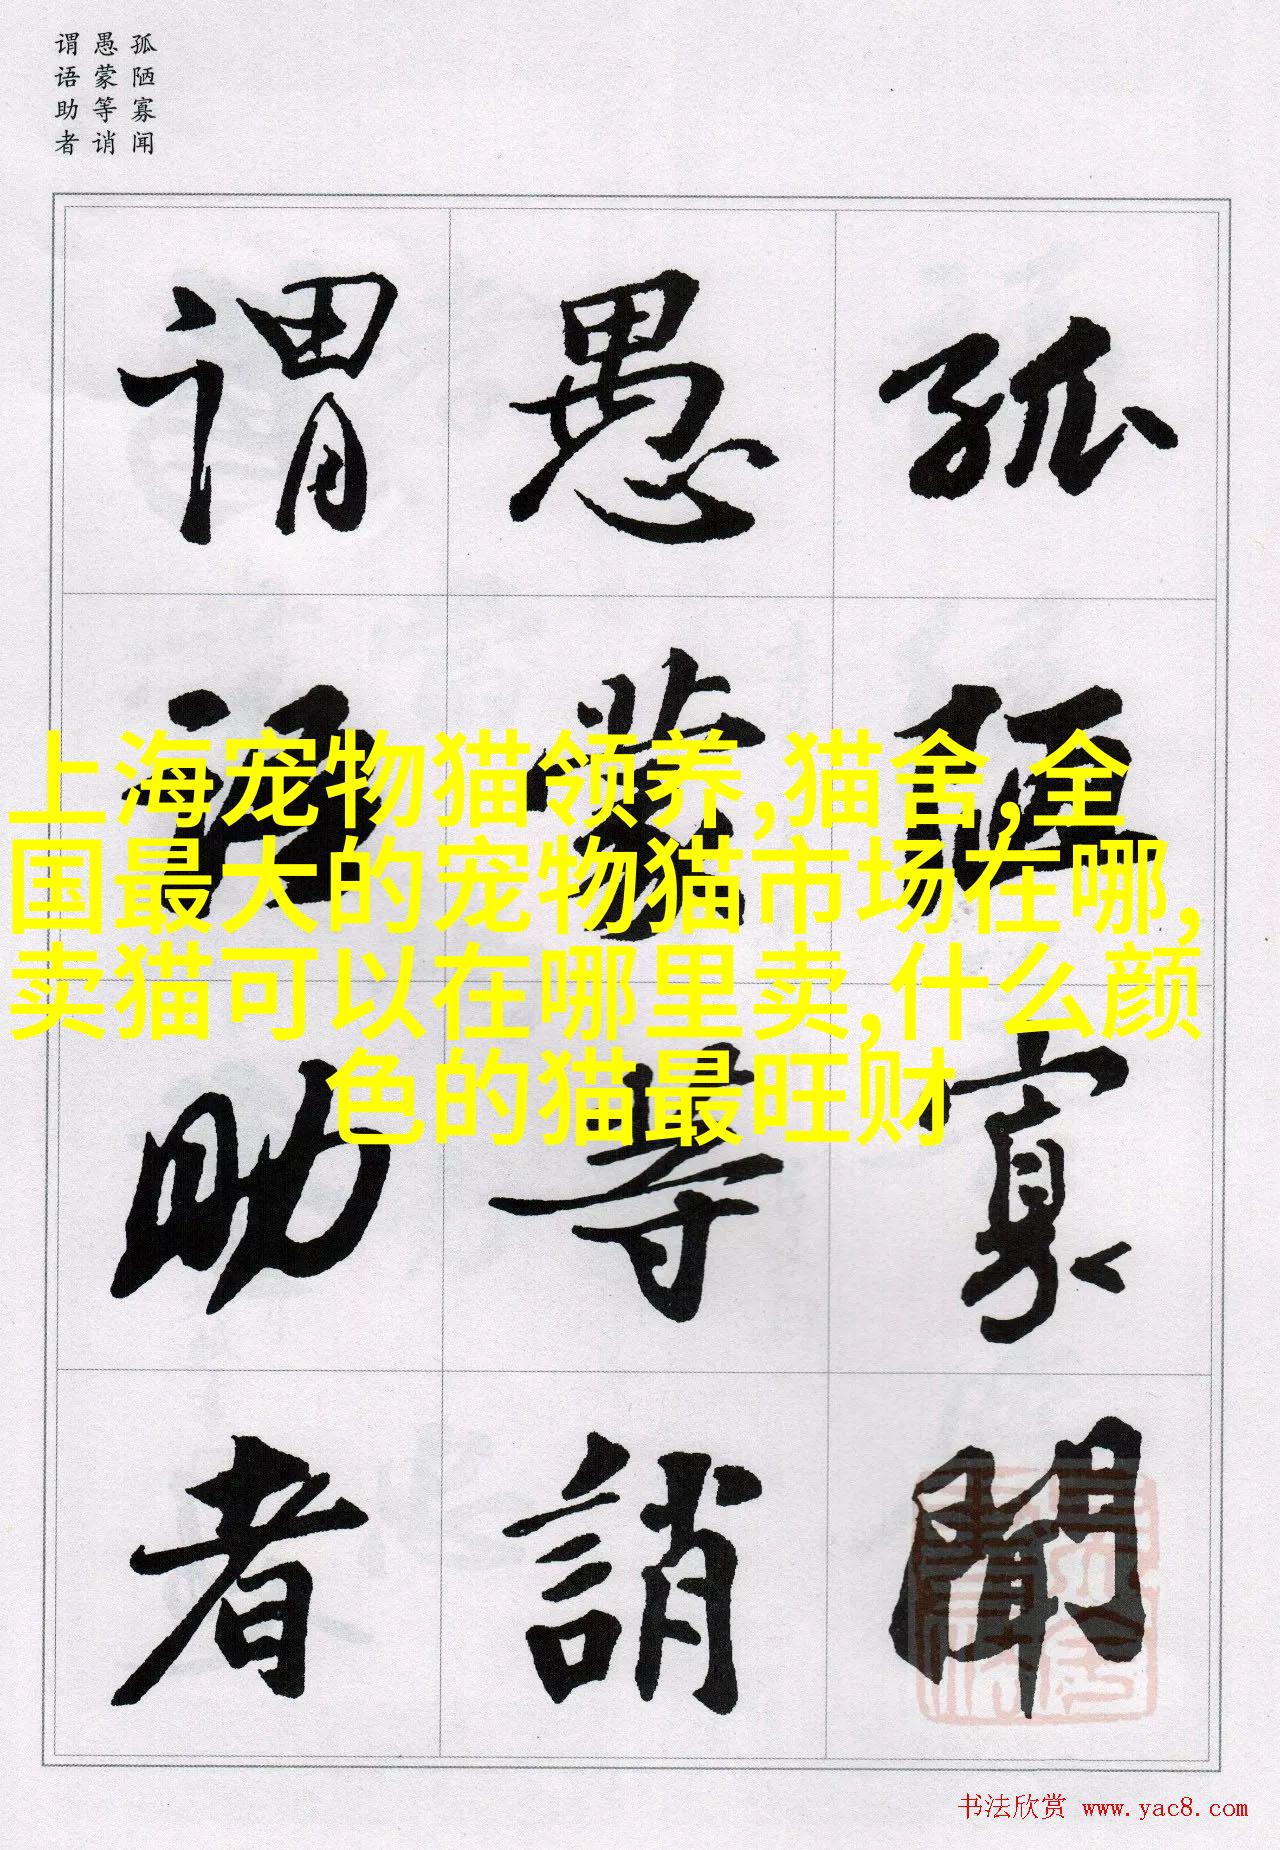 孤陋寡闻
愚蒙等诮
谓语助者
孤陋寡聞
愚蒙等誚
谓语助者
上海宠物猫领养,猫舍,全
国最大的宠物猫市场在哪,
卖猫可以在哪里卖,什么颜
色的猫最旺财
书法欣赏 www.yac8.com